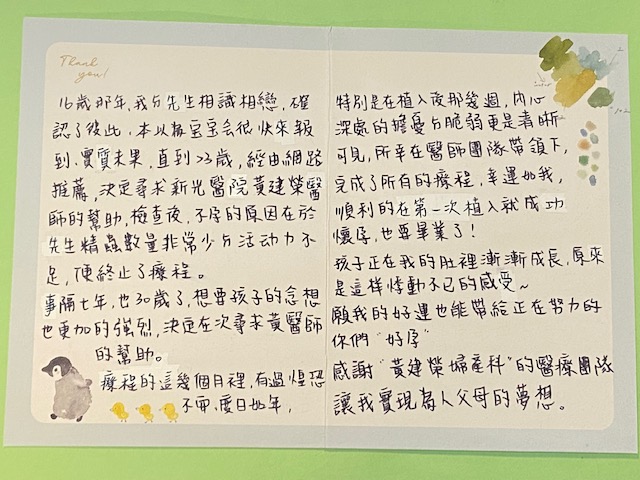 Thank you!
16歲那年,我与先生相識相戀,確
認了彼此,本以為宝宝会很快來報
到,實質未果,直到23歲,經由網路
推薦,決定尋求新光醫院黃建榮醫
師的幫助,檢查後,不孕的原因在於
先生精蟲數量非常少与活动力不
足,便終止了療程。
事隔七年,也30歲了,想要孩子的念想
也更加的強烈,決定在次尋求黃醫師
的幫助。
療程的這幾個月裡,有過惶恐
不安、度日如年,
特別是在植入後那幾週,內心
深處的擔憂与脆弱更是清晰
可見,所幸在醫師團隊帶領下,
完成了所有的療程,幸運如我,
順利的在第一次植入就成功
懷孕,也要畢業了!
孩子正在我的肚裡漸漸成長,原來
是這樣悸動不已的感受~
願我的好運也能帶給正在努力的
你們"好孕"
感謝"黃建榮婦產科"的醫療團隊
讓我實現為人父母的夢想。